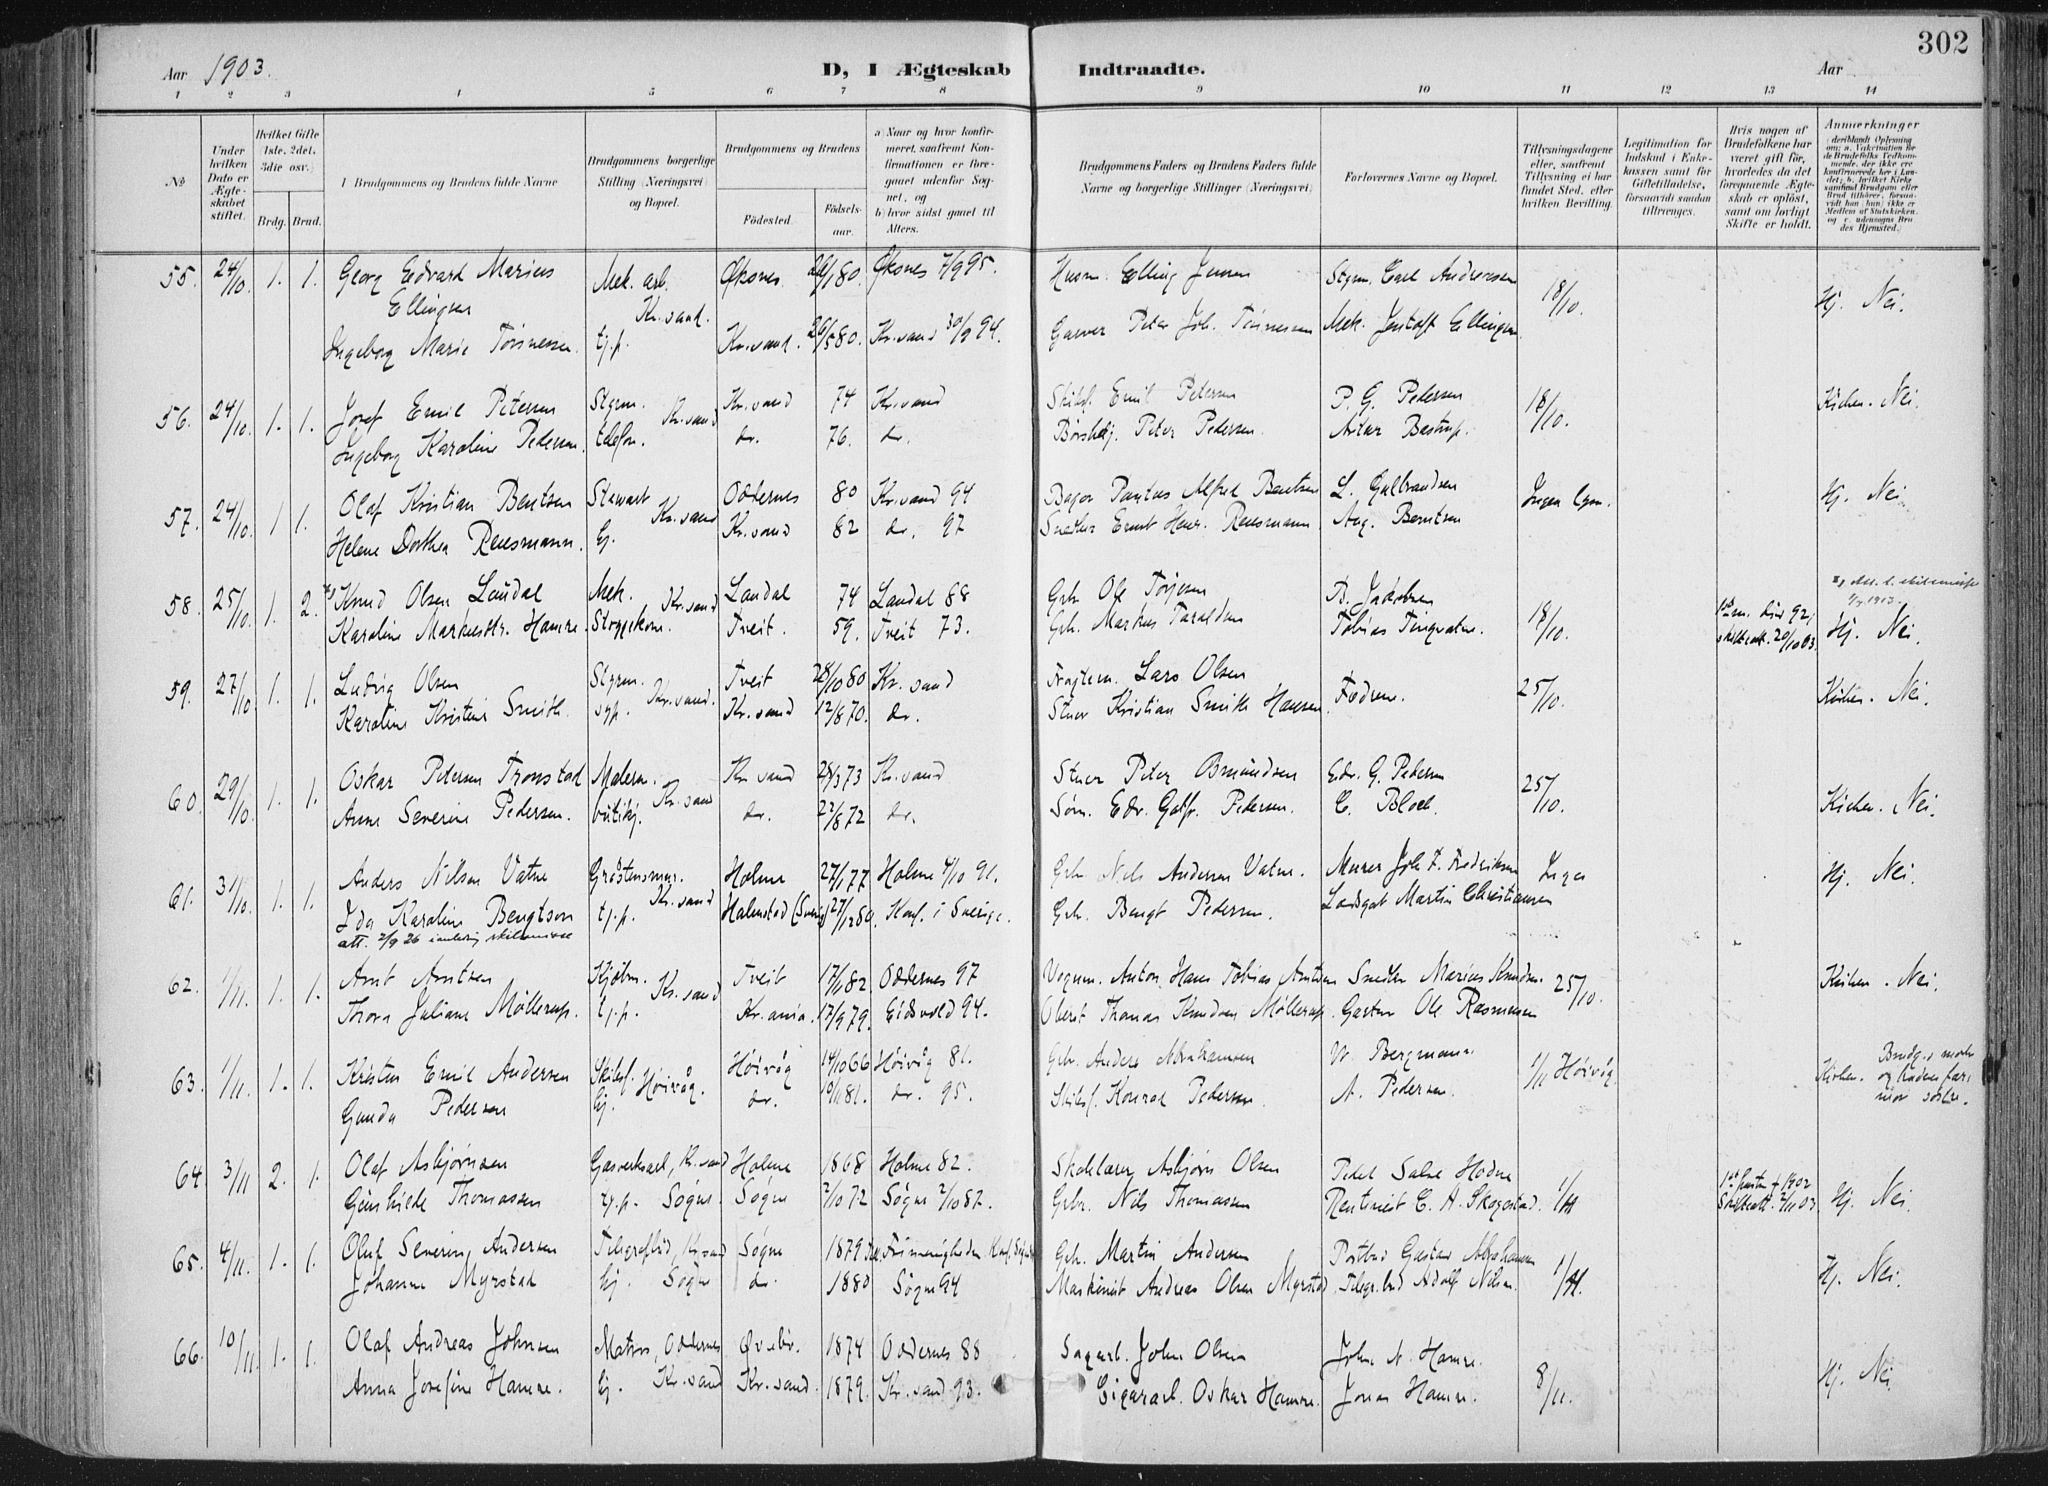 302
Aar 1903.
D, I Ægteskab Indtraadte.
Aar
1 2 3 4 5 6 7 8 9 10 11 12 13 14
No
Under hvilken Dato er Ægteskabet stiftet.
Hvilket Gifte (1ste, 2det, 3die osv.)
Brdg. Brud.
1 Brudgommens og Brudens fulde Navne
Brudgommens borgerlige Stilling (Næringsvei) og Bopæl.
Brudgommens og Brudens
Fødested. Fødselsaar.
a) Naar og hvor konfirmeret, saafremt Konfirmationen er foregaaet udenfor Sognet, og
b) hvor sidst gaaet til Alters.
Brudgommens Faders og Brudens Faders fulde Navne og borgerlige Stillinger (Næringsvei)
Forlovernes Navne og Bopæl.
Tillysningsdagene eller, saafremt Tillysning ei har fundet Sted, efter hvilken Bevilling.
Legitimation for Indskud i Enkekassen samt for Giftetilladelse, forsaavidt saadan tiltrænges.
Hvis nogen af Brudefolkene har været gift før, hvorledes da det foregaaende Ægteskab er opløst, samt om lovligt Skifte er holdt.
Anmærkninger
55. 24/10. 1. 1. Georg Edvard Marius Ellingsen Mek. arb. Kr.sand. Øksnes 80. Øksnes 7/9 95. Husm. Elling Jensen Styrm. Carl Andreassen 18/10. Hj. Nei.
Ingeborg Marie Tørnessen. tj.p. Kr.sand. 26/5 80. Kr.sand 30/9 94. Peter Joh. Tørnessen Mek. Ellingsen
56. 24/10. 1. 1. Josef Emil Petersen Styrm. Kr.sand Kr.sand 74 Kr.sand Skibsf. Emil Petersen P. G. Pedersen 18/10. Kirken. Nei.
Ingeborg Karoline Pedersen. telefon. do. 76. do. Peter Pedersen. Artur Bastrup.
57. 24/10. 1. 1. Olaf Kristian Bentsen Stewart Kr.sand Oddernes 80 Kr.sand 94 Bager Alfred Bentsen L. Gulbrandsen Ingen Hj. Nei.
Helene Dorthea Reusmann. Hj. Kr.sand 82 do. 97 Snedker Ernst Henr. Reusmann Aug. Berntsen
58. 25/10. 1. 2. Knud Olsen Laudal Mek. Kr.sand Laudal 74 Laudal 88 Grb. Ole Torjesen B. Jakobsen 18/10. 1ste m. død 92, 1913.
Karoline Markusdtr. Hamre. Strygekone. Tveit. 59. Tveit 73. Grb. Markus Taraldsen Tobias Tingvatne. skifteatt. 20/10 03. Hj. Nei.
59. 27/10. 1. 1. Ludvig Olsen Styrm. Kr.sand. Tveit 28/10 80 Kr.sand Fragtem. Lars Olsen Fædrene. 25/10. Kirken. Nei.
Karoline Kristine Smith. syp. Kr.sand 12/8 70. do. Stuer Kristian Smith Hansen
60. 29/10. 1. 1. Oskar Petersen Tronstad Malersv. Kr.sand Kr.sand 28/3 73 Kr.sand Stuer Peter Osmundsen Edv. G. Pedersen 25/10. Kirken. Nei.
Anne Severine Pedersen. butikj. do. 22/8 72 do. Søm. Edv. Gotfr. Pedersen. C. Bloch.
61. 31/10. 1. 1. Anders Nilsen Vatne Kr.sand Holme 27/1 77 Holme 4/10 91. Grb. Nils Andersen Vatne. Murer Joh. F. Fredriksen Ingen Hj. Nei.
Ida Karoline Bengtson tj.p. Halmstad (Sverige) 27/12 80. Konf. i Sverige. Grb. Bengt Pedersen. Martin Christiansen
att. 2/9 26 skilsmisse
62. 1/11. 1. 1. Arnt Arntsen Kjøbm. Kr.sand Tveit 17/1 82. Oddernes 97 Vognm. Anton Hans Tobias Arntsen Smedm. Marius Knudsen. 25/10. Kirken. Nei.
Thora Juliane Møllerup. tj.p. Kr.ania. 17/9 79. Eidsvold 94. Oberst Thomas Knudsen Møllerup. Gartner Ole Rasmussen
63. 1/11. 1. 1. Kristen Emil Andersen Skibsf. Høivåg. Høivåg 14/10 66 Høivåg 81. Grb. Anders Abrahamsen W. Bergmann. 1/11 Høivåg. Kirken. Brudg.s mor og brudens farmor søstre.
Gunda Pedersen Hj. do. 10/11 81. do. 95. Skibsf. Konrad Pedersen. A. Pedersen.
64. 3/11 2. 1. Olaf Asbjørnsen Gasverksarb., Kr.sand Holme 1868 Holme 82. Skolelærer Asbjørn Olsen Pedel Salve Hodne 1/11 1ste hustru † 1902 Hj. Nei.
Gunhilde Thomassen sy.p. Søgne. Søgne 2/10 72 Søgne 2/10 87. Grb. Nils Thomassen Rentenist C. A. Skogestad. Skifteatt. 2/11 03.
65. 4/11. 1. 1. Oluf Severin Andersen Telegrafbud, Kr.sand Søgne 1879 Frimenigheden Konf. Søgne Grb. Martin Andersen Postbud Gustav Abrahamsen 1/11. Hj. Nei.
Johanne Myrstad Hj. Søgne do. 1880 Søgne 94 Maskinist Andreas Olsen Myrstad. Telegr.bud Adolf Nilsen.
66. 10/11. 1. 1. Olaf Andreas Johnsen Matros, Oddernes Øvrebø. 1874 Oddernes 88 Sagarb. John Olsen John N. Hamre. 8/11. Hj. Nei.
Anna Josefine Hamre. Hj. Kr.sand Kr.sand. 1879. Kr.sand 93. Cigararb. Oskar Hamre. Jonas Hamre.